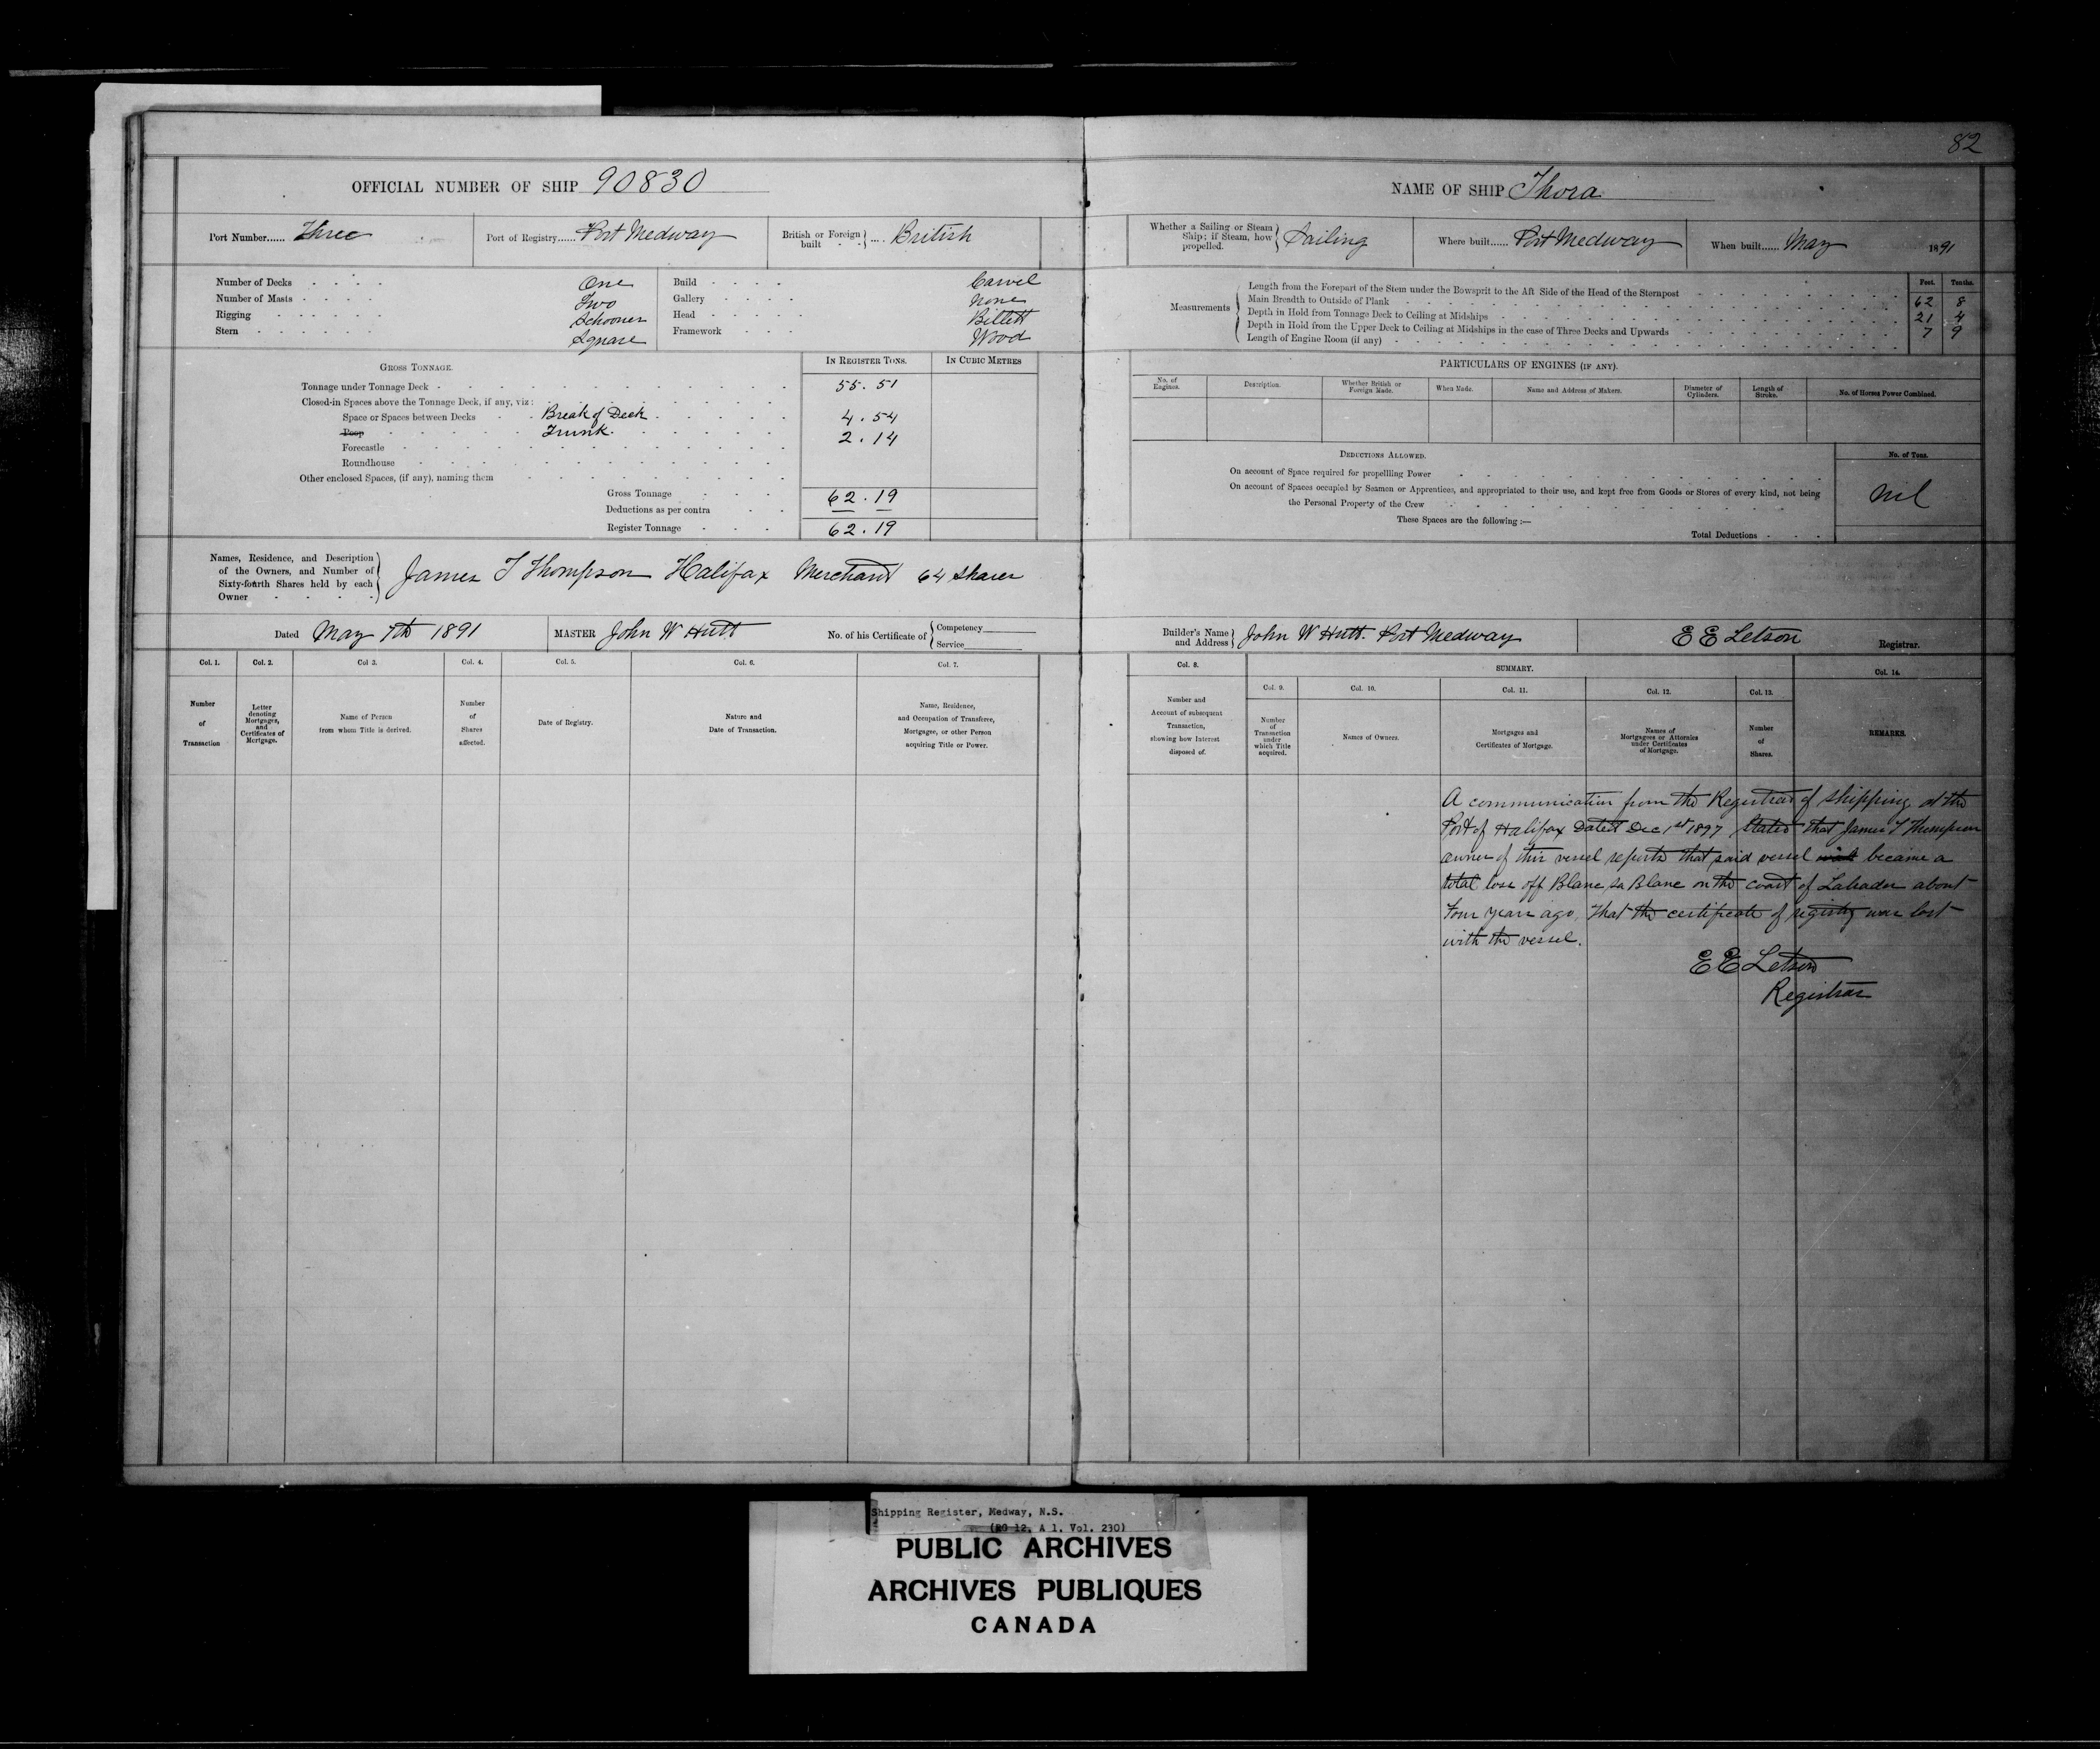 82
OFFICIAL NUMBER OF SHIP 90830
NAME OF SHIP Thora
Port Number...... Three
Port of Registry...... Port Medway
British or Foreign built .... British
Whether a Sailing or Steam Ship; if Steam, how propelled. Sailing
Where built...... Port Medway
When built...... May 1891
Number of Decks One
Number of Masts Two
Rigging Schooner
Stern Square
Build Carvel
Gallery None
Head Billett
Framework Wood
Measurements
Feet. Tenths.
Length from the Forepart of the Stem under the Bowsprit to the Aft Side of the Head of the Sternpost 62 8
Main Breadth to Outside of Plank 21 4
Depth in Hold from Tonnage Deck to Ceiling at Midships 7 9
Depth in Hold from the Upper Deck to Ceiling at Midships in the case of Three Decks and Upwards
Length of Engine Room (if any)
GROSS TONNAGE.
IN REGISTER TONS.
IN CUBIC METRES
Tonnage under Tonnage Deck 55.51
Closed-in Spaces above the Tonnage Deck, if any, viz:
Space or Spaces between Decks Break of Deck 4.54
Poop Trunk. 2.14
Forecastle
Roundhouse
Other enclosed Spaces, (if any), naming them
Gross Tonnage 62.19
Deductions as per contra
Register Tonnage 62.19
PARTICULARS OF ENGINES (IF ANY).
No. of Engines.
Description.
Whether British or Foreign Made.
When Made.
Name and Address of Makers.
Diameter of Cylinders.
Length of Stroke.
No. of Horses Power Combined.
DEDUCTIONS ALLOWED.
No. of Tons.
On account of Space required for propellling Power
On account of Spaces occupied by Seamen or Apprentices, and appropriated to their use, and kept free from Goods or Stores of every kind, not being
the Personal Property of the Crew
nil
These Spaces are the following :—
Total Deductions
Names, Residence, and Description
of the Owners, and Number of
Sixty-fourth Shares held by each
Owner
James T Thompson Halifax Merchant 64 Shares
Dated May 7th 1891
MASTER John W Hutt
No. of his Certificate of Competency Service
Builder's Name and Address John W Hutt. Port Medway
E E Letson Registrar.
Col. 1.
Col. 2.
Col 3.
Col. 4.
Col. 5.
Col. 6.
Col. 7.
Number of Transaction
Letter denoting Mortgages, and Certificates of Mortgage.
Name of Person from whom Title is derived.
Number of Shares affected.
Date of Registry.
Nature and Date of Transaction.
Name, Residence, and Occupation of Transferee, Mortgagee, or other Person acquiring Title or Power.
Col. 8.
SUMMARY.
Col. 14.
Col. 9.
Col. 10.
Col. 11.
Col. 12.
Col. 13.
Number and Account of subsequent Transaction, showing how Interest disposed of.
Number of Transaction under which Title acquired.
Names of Owners.
Mortgages and Certificates of Mortgage.
Names of Mortgagees or Attornies under Certificates of Mortgage.
Number of Shares.
REMARKS.
A communication from the Registrar of Shipping at the
Port of Halifax Dated Dec 1st 1897 Stated that James T Thompson
owner of this vessel reports that said vessel became a
total loss off Blanc Sa Blanc on the coast of Labrador about
four years ago, That the certificate of registry was lost
with the vessel.
E E Letson
Registrar
Shipping Register, Medway, N.S.
(RG 12, A 1, Vol. 230)
PUBLIC ARCHIVES
ARCHIVES PUBLIQUES
CANADA